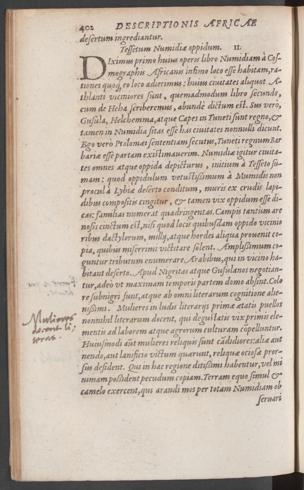 402 DESCRIPTIONIS AFRICAE
desertum ingrediantur.
Tessetum Numidiæ oppidum. II.
DIximus primo huius operis libro Numidiam à Cos-
mographis Africanis infimo loco esse habitam, ra-
tiones quoq; eo loco adiecimus: huius ciuitates aliquot A-
thlanti viciniores sunt, quemadmodum libro secundo,
cum de Heha scriberemus, abundè dictum est. Sus verò,
Gusula, Helchemma, atque Capes in Tuneti sunt regno, &
tamen in Numidia sitas esse has ciuitates nonnulli dicunt.
Ego verò Ptolomæi sententiam secutus, Tuneti regnum Bar
bariæ esse partem existimauerim. Numidiæ igitur ciuita-
tes omnes atque oppida depicturus, initium à Tesseto su-
mam: quod oppidulum vetustissimum à Numidis non
procul à Lybiæ deserto conditum, muris ex crudis lapi-
dibus compositis cingitur, & tamen vix oppidum esse di-
cas: familias numerat quadringentas. Campis tantùm are
nosis cinctum est, nisi quod locis quibusdam oppido vicinio
ribus dactylorum, milij, atque hordei aliqua prouenit co-
pia, quibus miserrimi victitare solent. Amplissimum co-
guntur tributum enumerare, Arabibus, qui in vicino ha-
bitant deserto. Apud Nigritas atque Gusulanos negotian-
tur, adeò vt maximam temporis partem domo absint. Colo
re subnigri sunt, atque ab omni literarum cognitione alie-
nissimi. Mulieres in ludis literarijs primæ ætatis puellas
nonnihil literarum docent, quæ degustatis vix primis ele-
mentis ad laborem atque agrorum culturam compelluntur.
Huiusmodi aut mulieres reliquis sunt candidiores: aliæ aut
nendo, aut lanificio victum quærunt, reliquæ ociosæ pror-
sus desident. Qui in hac regione ditissimi habentur, vel mi
nimam possident pecudum copiam. Terram equo simul &
camelo exercent, qui arandi mos per totam Numidiam ob
seruari
Mulieres
docent li-
teras